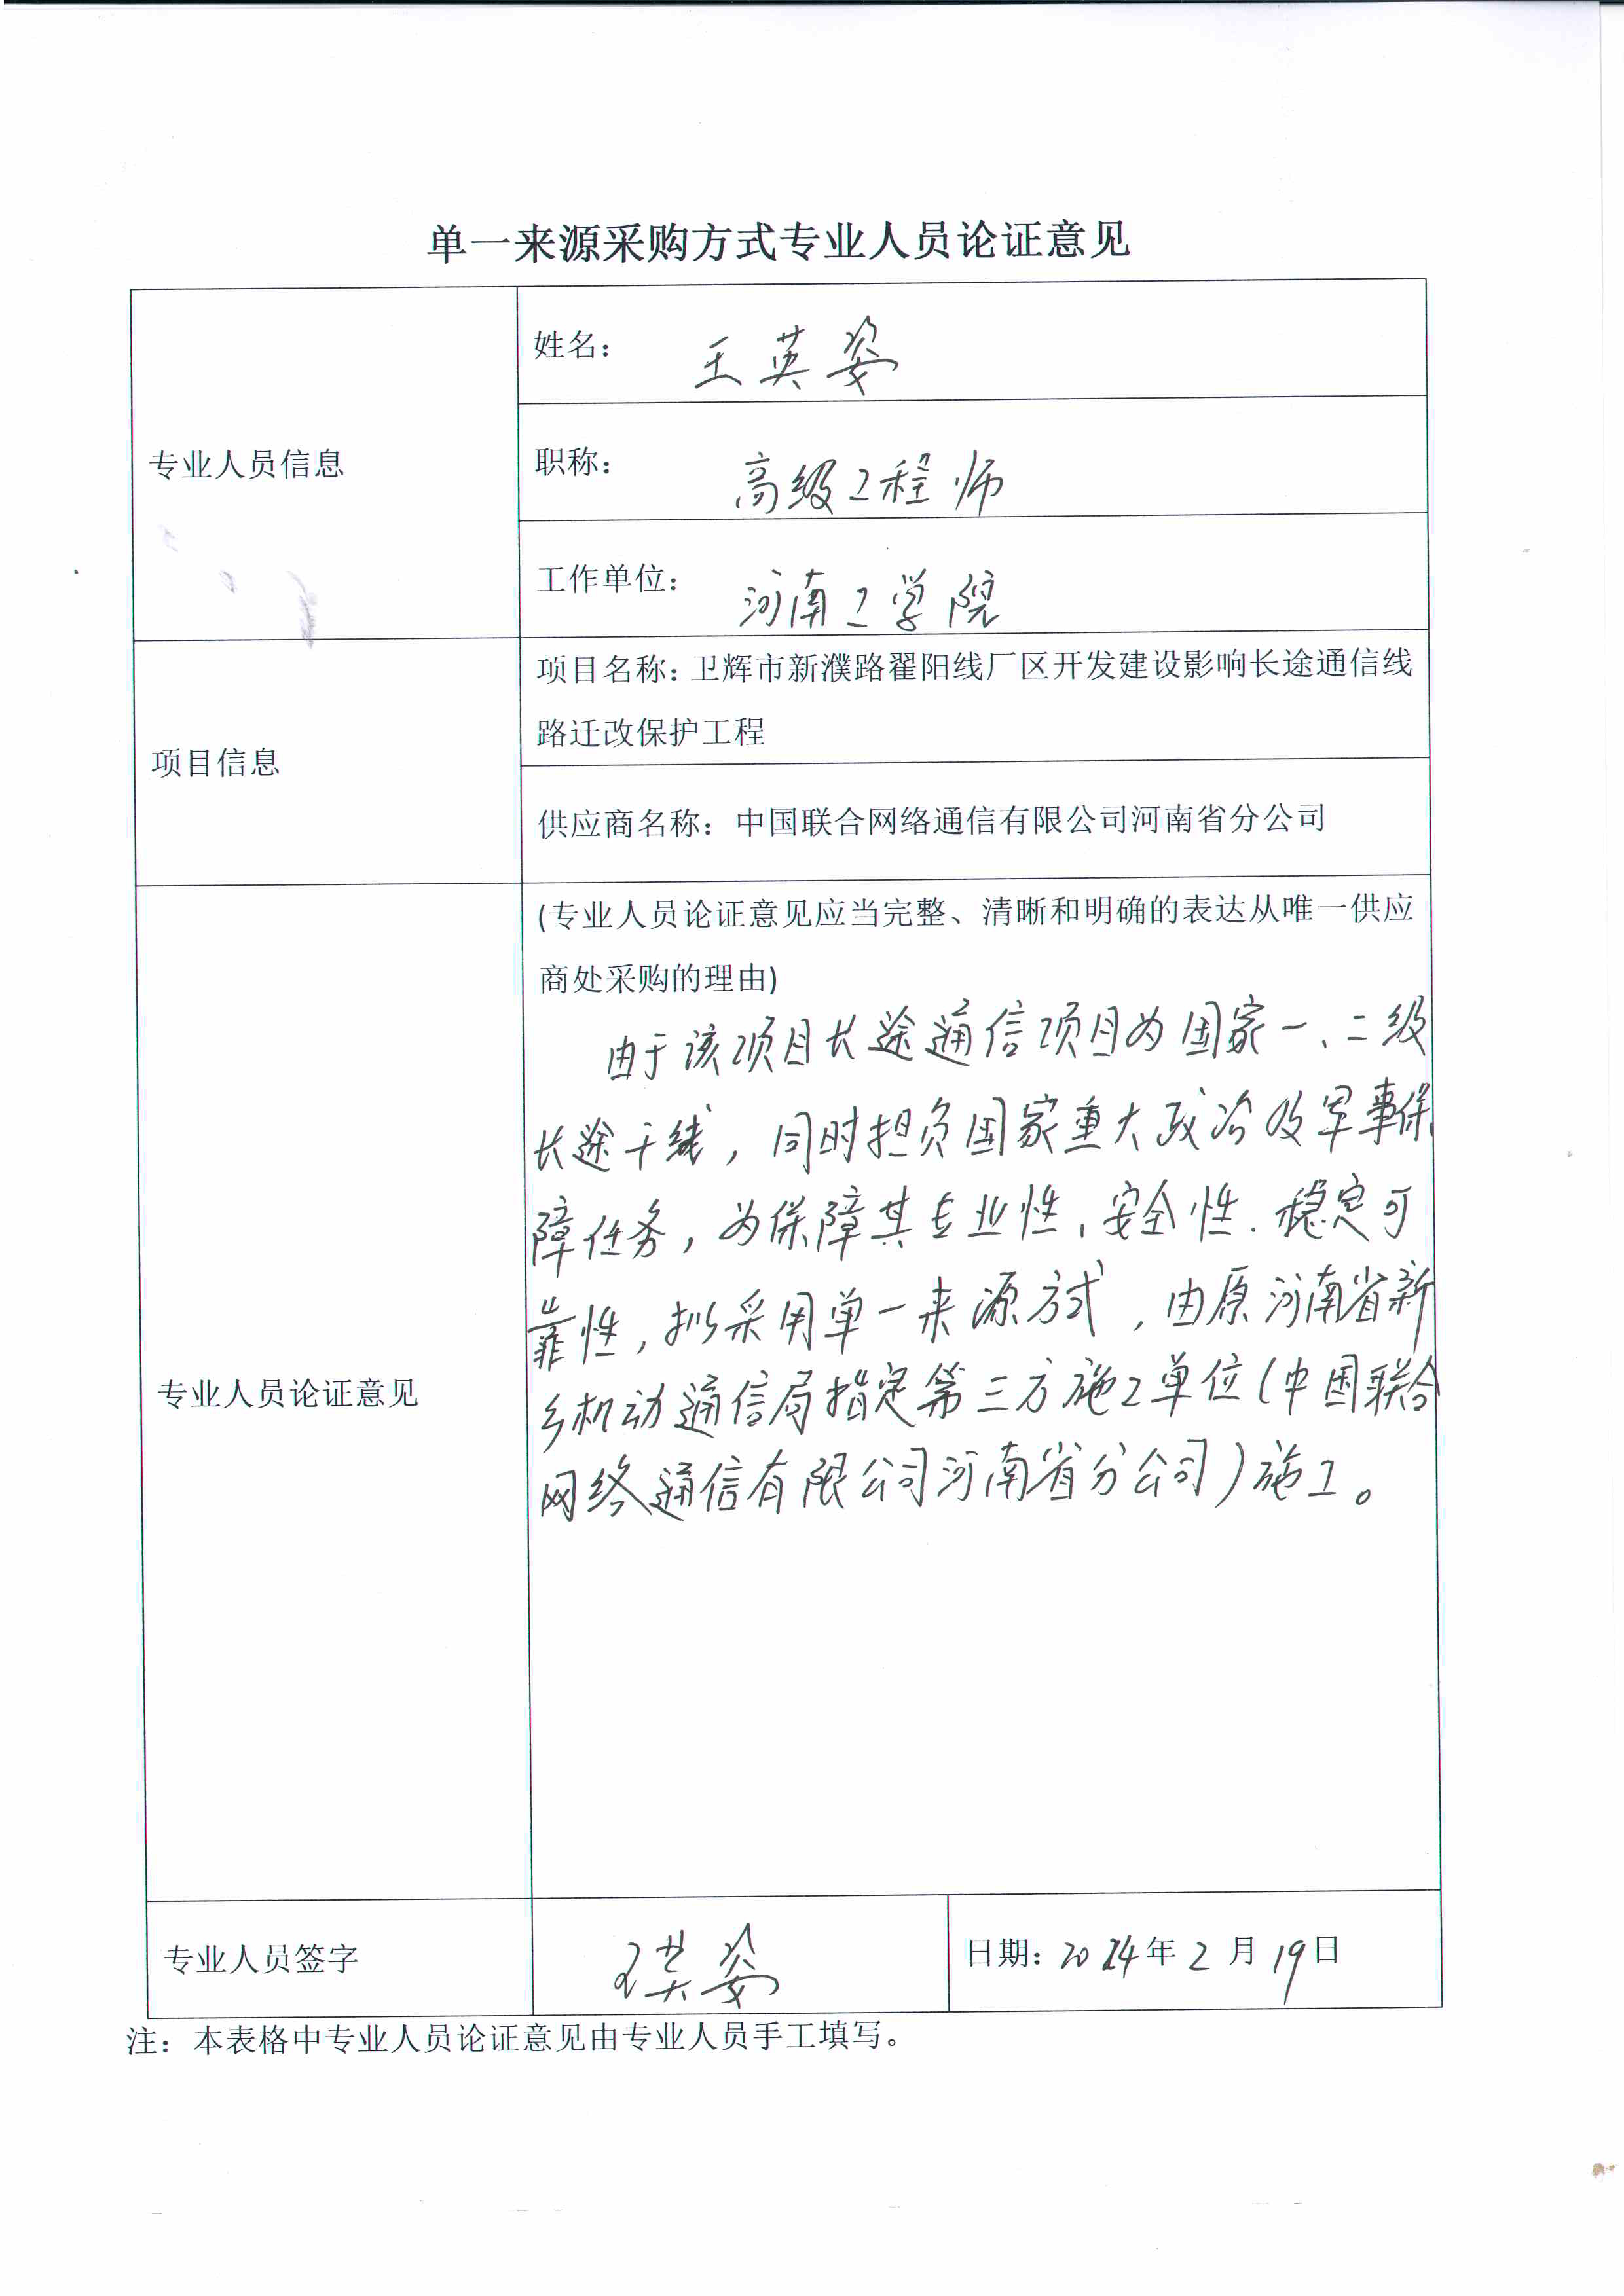 单一来源采购方式专业人员论证意见
专业人员信息
姓名： 王英姿
职称： 高级工程师
工作单位： 河南工学院
项目信息
项目名称：卫辉市新濮路翟阳线厂区开发建设影响长途通信线
路迁改保护工程
供应商名称：中国联合网络通信有限公司河南省分公司
专业人员论证意见
(专业人员论证意见应当完整、清晰和明确的表达从唯一供应
商处采购的理由)
由于该项目长途通信项目为国家一、二级
长途干线，同时担负国家重大政治及军事保
障任务，为保障其专业性、安全性、稳定可
靠性，拟采用单一来源方式，由原河南省新
乡机动通信局指定第三方施工单位(中国联合
网络通信有限公司河南省分公司)施工。
专业人员签字
王英姿
日期：2024年2月19日
注：本表格中专业人员论证意见由专业人员手工填写。